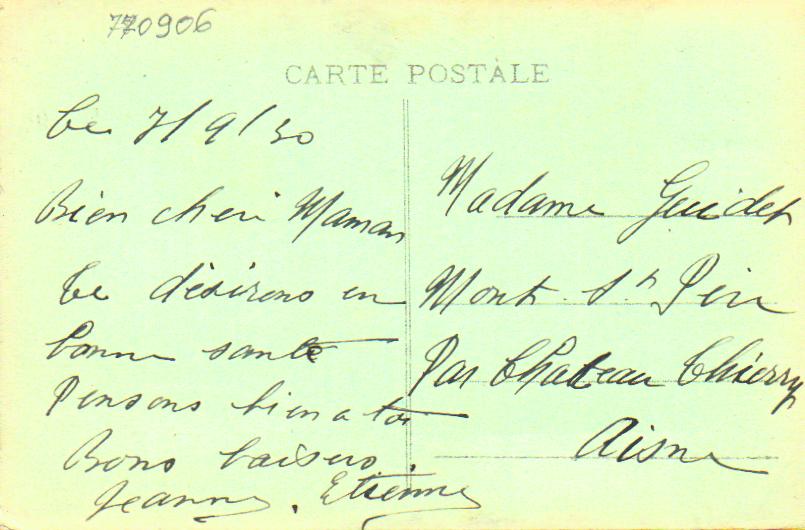 770906
CARTE POSTALE
Le 7/9/30
Bien cheri Maman
te désirons en
bonne santé
Pensons bien a toi
Bons baisers.
Jeanne. Etienne
Madame Guidet
Mont St Père
Par Chateau Chierry
Aisne